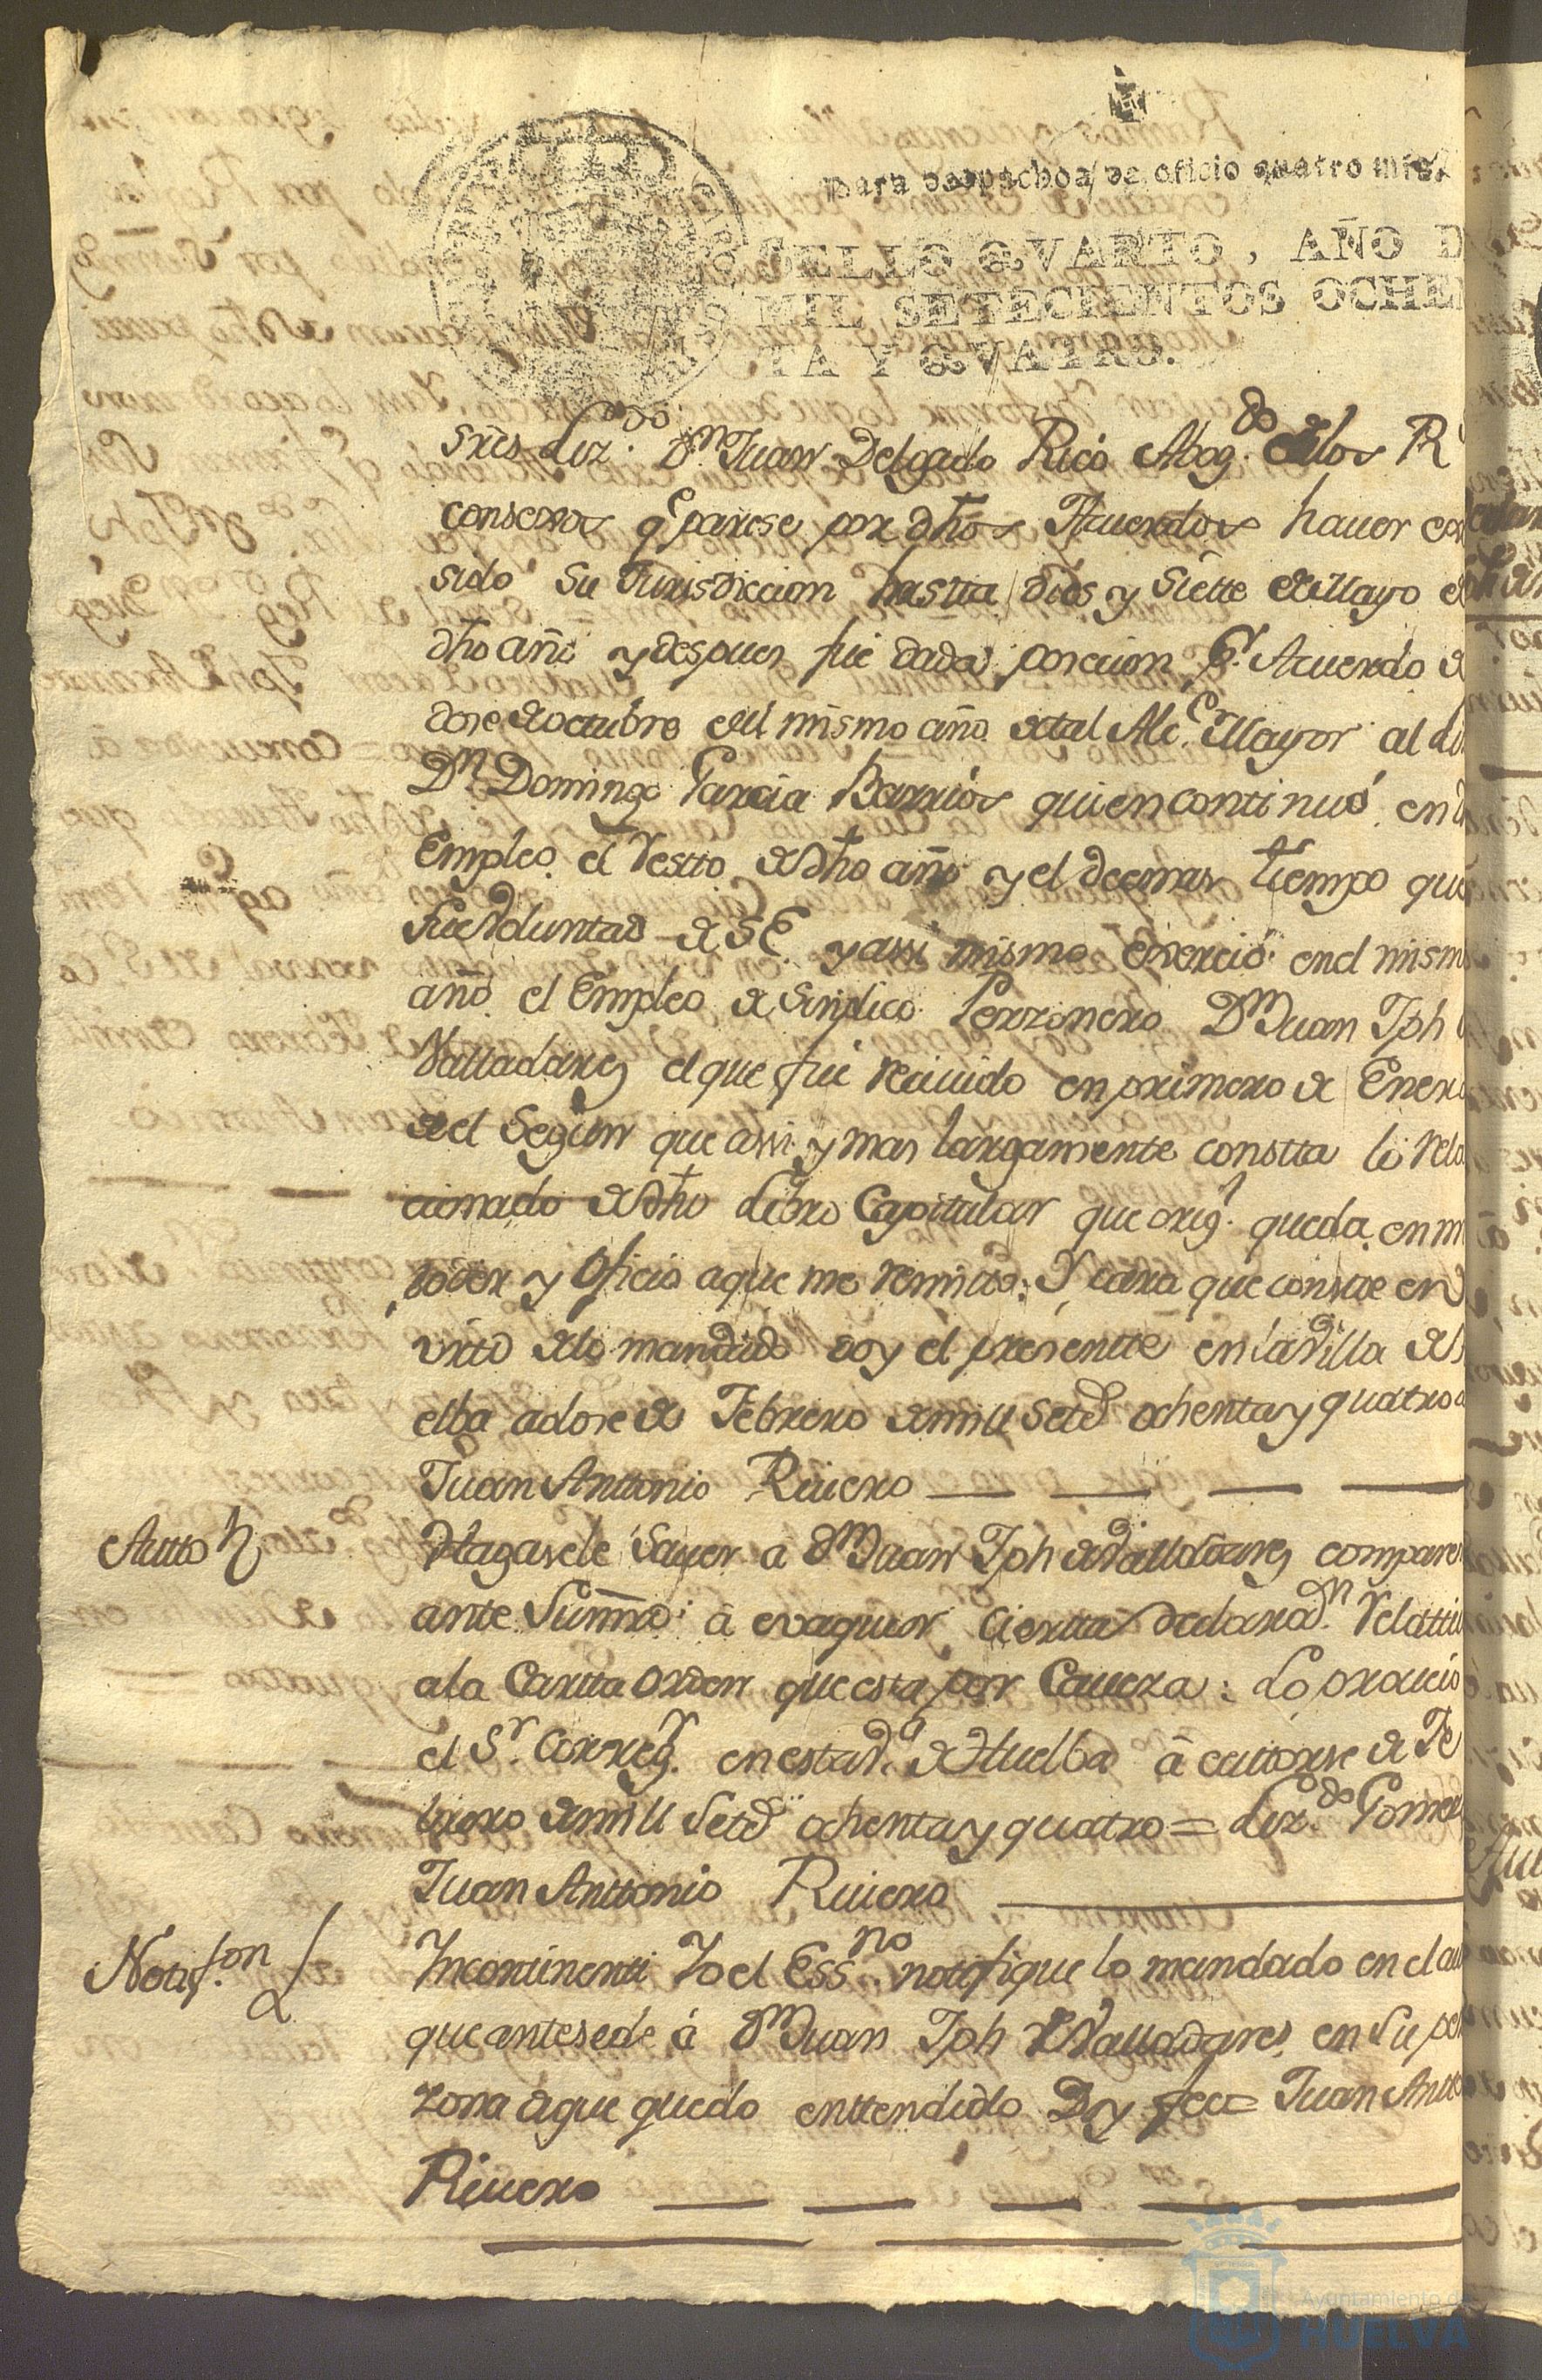 para despachos de oficio quatro mrs.
SELLO QVARTO, AÑO D
MIL SETECIENTOS OCHEN
TA Y QVATRO.
sres Lizdo. Dn. Juan Delgado Rico Abogdo. de los Rs
consexos qe parese por dhos Acuerdos hauer
sido su Jurisdiccion hastta dies y Siette de Mayo de
dho año y despues fue dada posecion Pr. Acuerdo de
dose de octubre del mismo año de tal Alce. Mayor al Li
Dn Domingo Garcia Barrios quien continuó en
Empleo el Restto de dho año y el decmas tiempo que
fue Voluntad de S.E. y assi mismo exerció en el mism
año el Empleo de Sindico Perzonero Dn Juan Jph
Valladares el que fue Reciuido en primero de Enero
de el Segun que assi y mas largamente constta lo Rela
cionado de dho Libro Capitular que origl. queda en m
poder y Oficio a que me Remito: Y para que constte en
virtd de lo mandado doy el presentte en la Villa de H
elba a dose de Febrero de mill Setes ochenta y quatro a
Juan Anttonio Riuero
Autto
Hagasele Sauer a Dn Juan Jph de Valladares compares
ante Sumrd: á evaquar Cierta declaradn. Relattiu
a la Cartta orden que esta por Caueza: Lo proueió
el Sr. Corregr. en esta Va. de Huelba á cattorse de Fe
brero de mill Setes ochenta y quatro = Lizdo. Gomez
Juan Anttonio Riuero
Notifon
Incontinentti Yo el Essno. notifique lo mandado en el au
que antesede á Dn Juan Jph de Valladares en Su per
zona de que quedo enttendido Doy fee = Juan Antto
Riuero
Ayuntamiento de
HUELVA